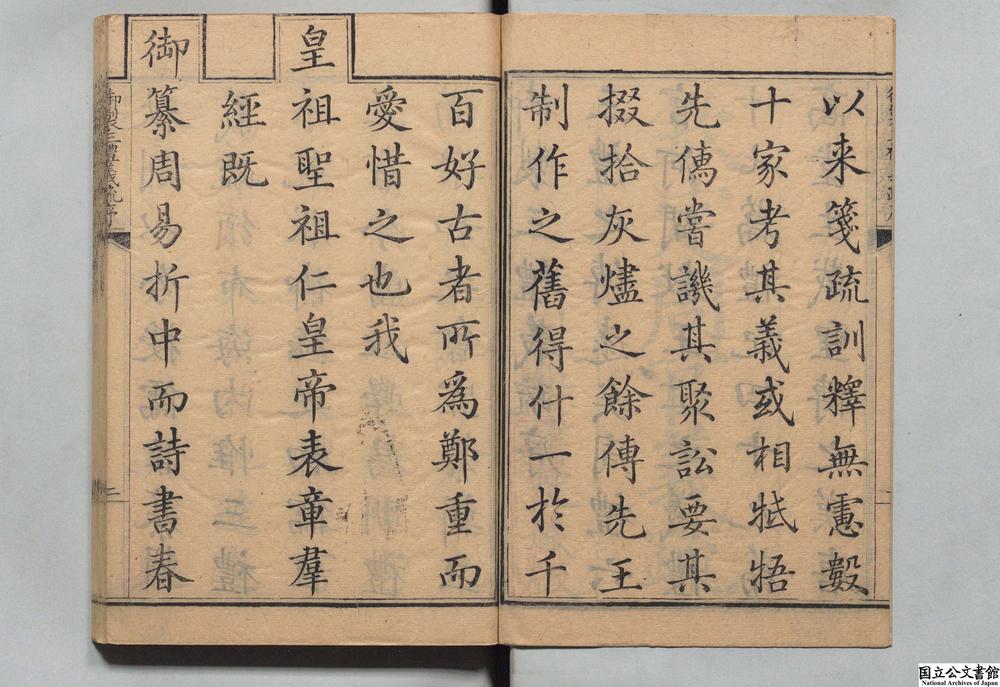 以来箋疏訓釋無慮數
十家考其義或相牴牾
先儒嘗譏其聚訟要其
掇拾灰燼之餘傳先王
制作之舊得什一於千
百好古者所為鄭重而
愛惜之也我
皇
祖聖祖仁皇帝表章羣
經既
御
纂周易折中而詩書春
御製三禮義疏序
二
国立公文書館
National Archives of Japan